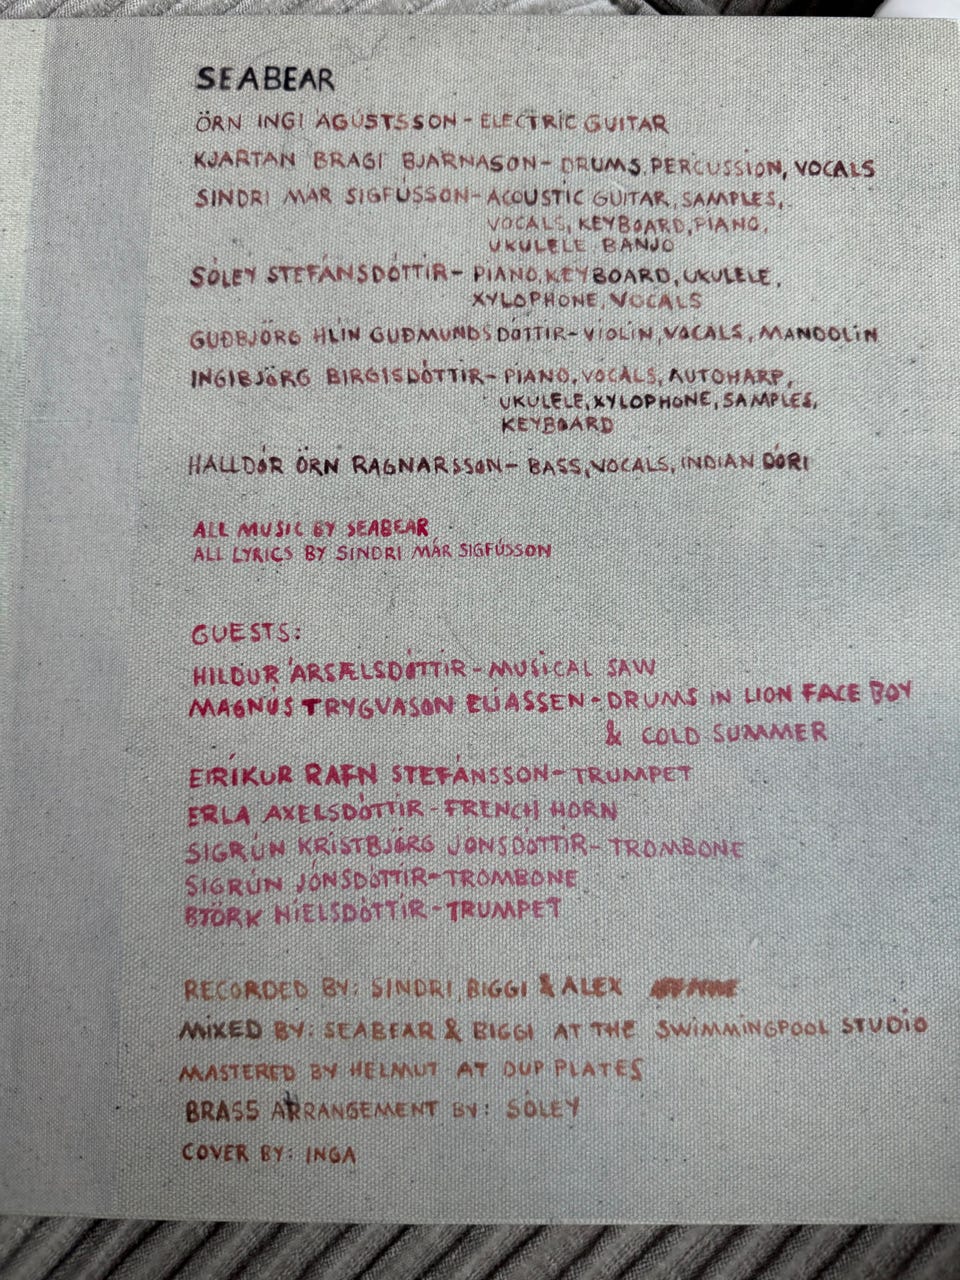 SEABEAR
ÖRN INGI ÁGÚSTSSON - ELECTRIC GUITAR
KJARTAN BRAGI BJARNASON - DRUMS, PERCUSSION, VOCALS
SINDRI MÁR SIGFÚSSON - ACOUSTIC GUITAR, SAMPLES,
VOCALS, KEYBOARD, PIANO,
UKULELE, BANJO
SÓLEY STEFÁNSDÓTTIR - PIANO, KEYBOARD, UKULELE,
XYLOPHONE, VOCALS
GUÐBJÖRG HLÍN GUÐMUNDSDÓTTIR - VIOLIN, VOCALS, MANDOLIN
INGIBJÖRG BIRGISDÓTTIR - PIANO, VOCALS, AUTOHARP,
UKULELE, XYLOPHONE, SAMPLES,
KEYBOARD
HALLDÓR ÖRN RAGNARSSON - BASS, VOCALS, INDIAN DÓRI
ALL MUSIC BY SEABEAR
ALL LYRICS BY SINDRI MÁR SIGFÚSSON
GUESTS:
HILDUR ÁRSÆLSDÓTTIR - MUSICAL SAW
MAGNÚS TRYGVASON ELÍASSEN - DRUMS IN LION FACE BOY
& COLD SUMMER
EIRÍKUR RAFN STEFÁNSSON - TRUMPET
ERLA AXELSDÓTTIR - FRENCH HORN
SIGRÚN KRISTBJÖRG JÓNSDÓTTIR - TROMBONE
SIGRÚN JÓNSDÓTTIR - TROMBONE
BJÖRK NÍELSDÓTTIR - TRUMPET
RECORDED BY: SINDRI, BIGGI & ALEX
MIXED BY: SEABEAR & BIGGI AT THE SWIMMINGPOOL STUDIO
MASTERED BY HELMUT AT DUPPLATES
BRASS ARRANGEMENT BY: SÓLEY
COVER BY: INGA